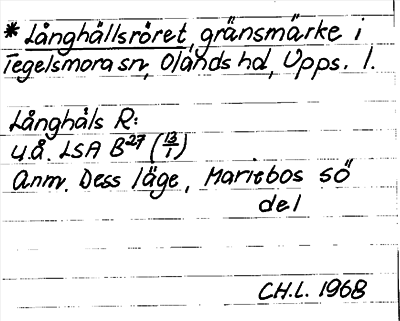 * Långhällsröret, gränsmärke i
Tegelsmora sn, Olands hd, Upps. l.
Långhåls R:
u.å. LSA B27 (13/1)
Anm. Dess läge, Mariebos sö
del
CH.L. 1968